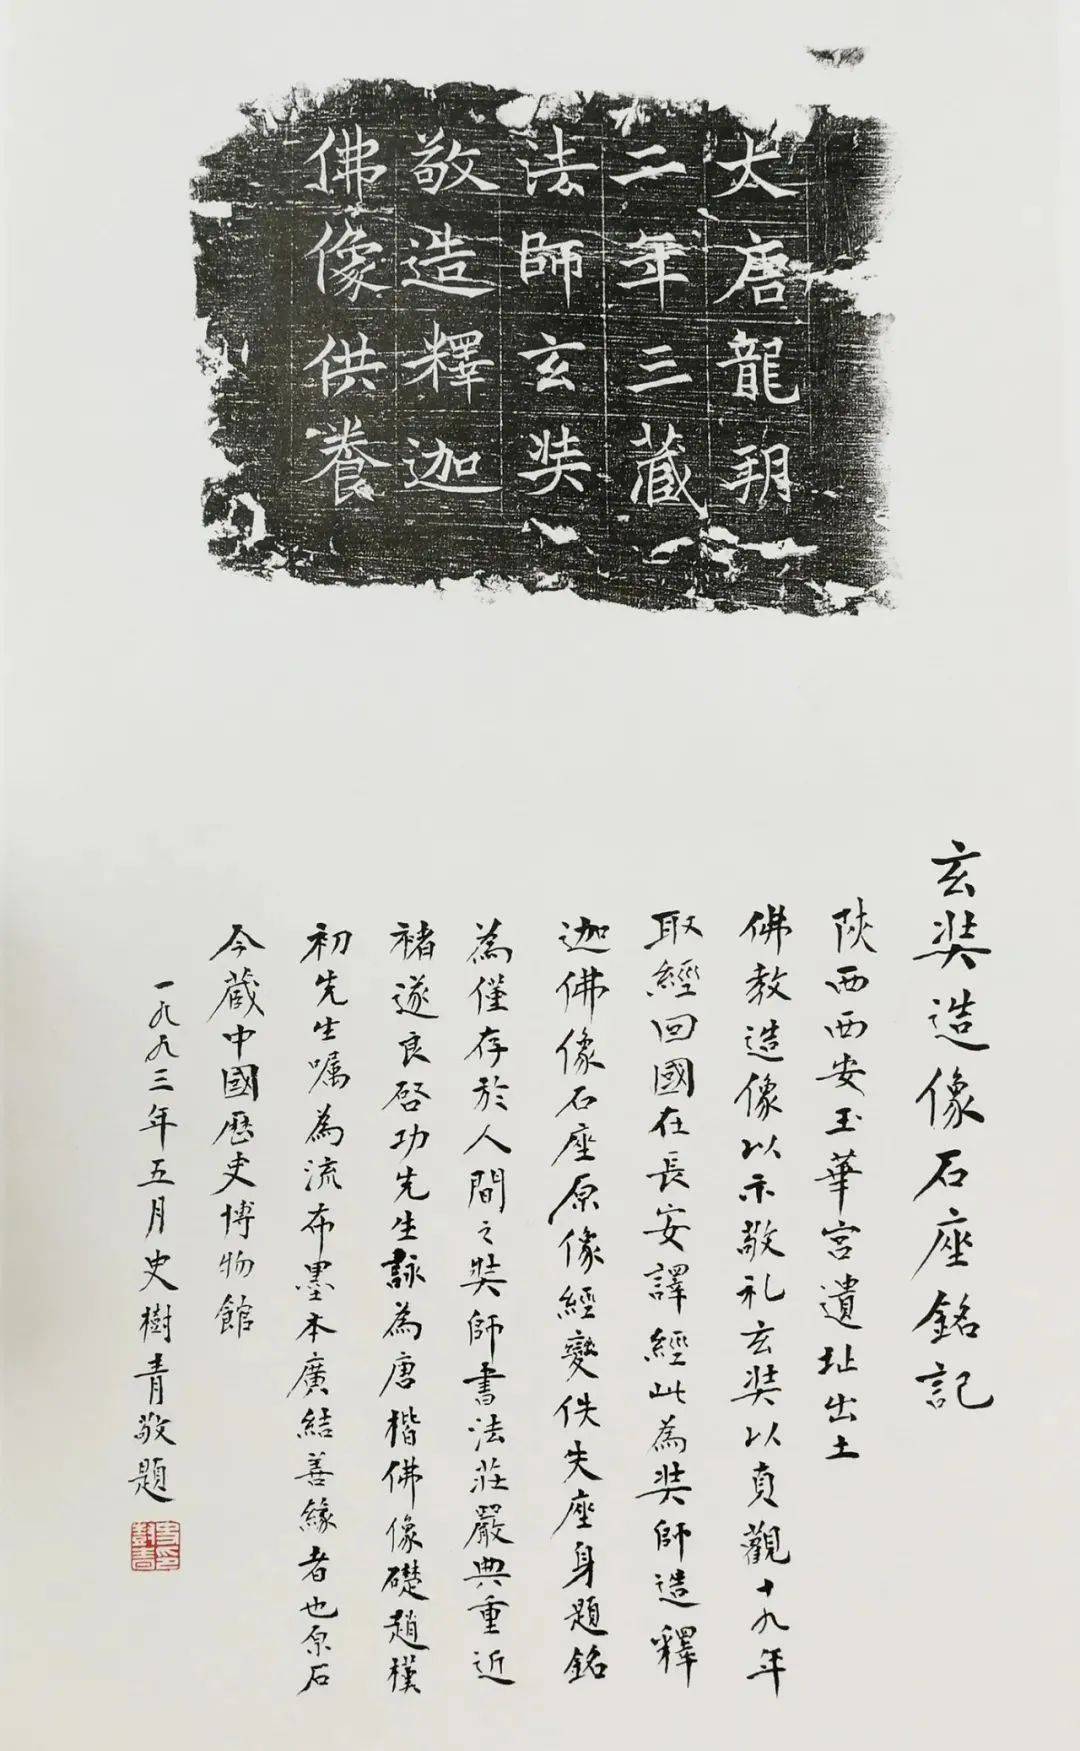 大唐龍朔
二年三藏
法師玄奘
敬造釋迦
佛像供養
玄奘造像石座銘記
陝西西安玉華宮遺址出土
佛教造像以示敬礼玄奘以貞觀十九年
取經回國在長安譯經此為奘師造釋
迦佛像石座原像經變佚失座身題銘
為僅存於人間之奘師書法莊嚴典重近
褚遂良啓功先生詠為唐楷佛像礎趙樸
初先生嘱為流布墨本廣結善緣者也原石
今藏中國歷史博物館
一九九三年五月史樹青敬題
史樹青印